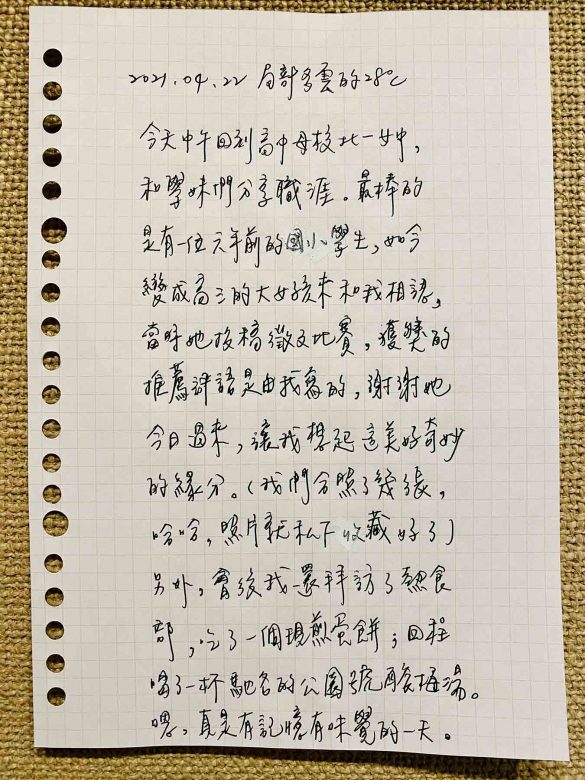 2021.04.22 局部多雲的28°C
今天中午回到高中母校北一女中,
和學妹們分享職涯。最棒的
是有一位六年前的國小學生,如今
變成高三的大女孩來和我相認,
當時她投稿徵文比賽,獲獎的
推薦評語是由我寫的,謝謝她
今日過來,讓我想起這美好奇妙
的緣分。(我們合照了幾張,
哈哈,照片就私下收藏好了)
另外,會後我還拜訪了熱食
部,吃了一個現煎蛋餅;回程
喝了一杯馳名的公園號酸梅湯。
嗯,真是有記憶有味覺的一天。